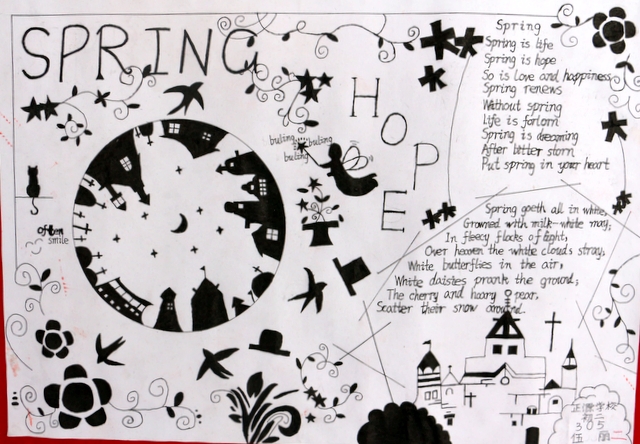 SPRING
HOPE
buling
buling
buling
often
smile
Spring
Spring is life
Spring is hope
So is Love and happiness
Spring renews
Without spring
life is forlorn
Spring is dreaming
After bitter storm
Put spring in your heart
Spring goeth all in white,
Crowned with milk-white may,
In fleecy flocks of light,
Over heaven the white clouds stray,
White butterflies in the air,
White daisies prank the ground,
The cherry and hoary pear,
Scatter their snow around.
学校
初二
305
伍